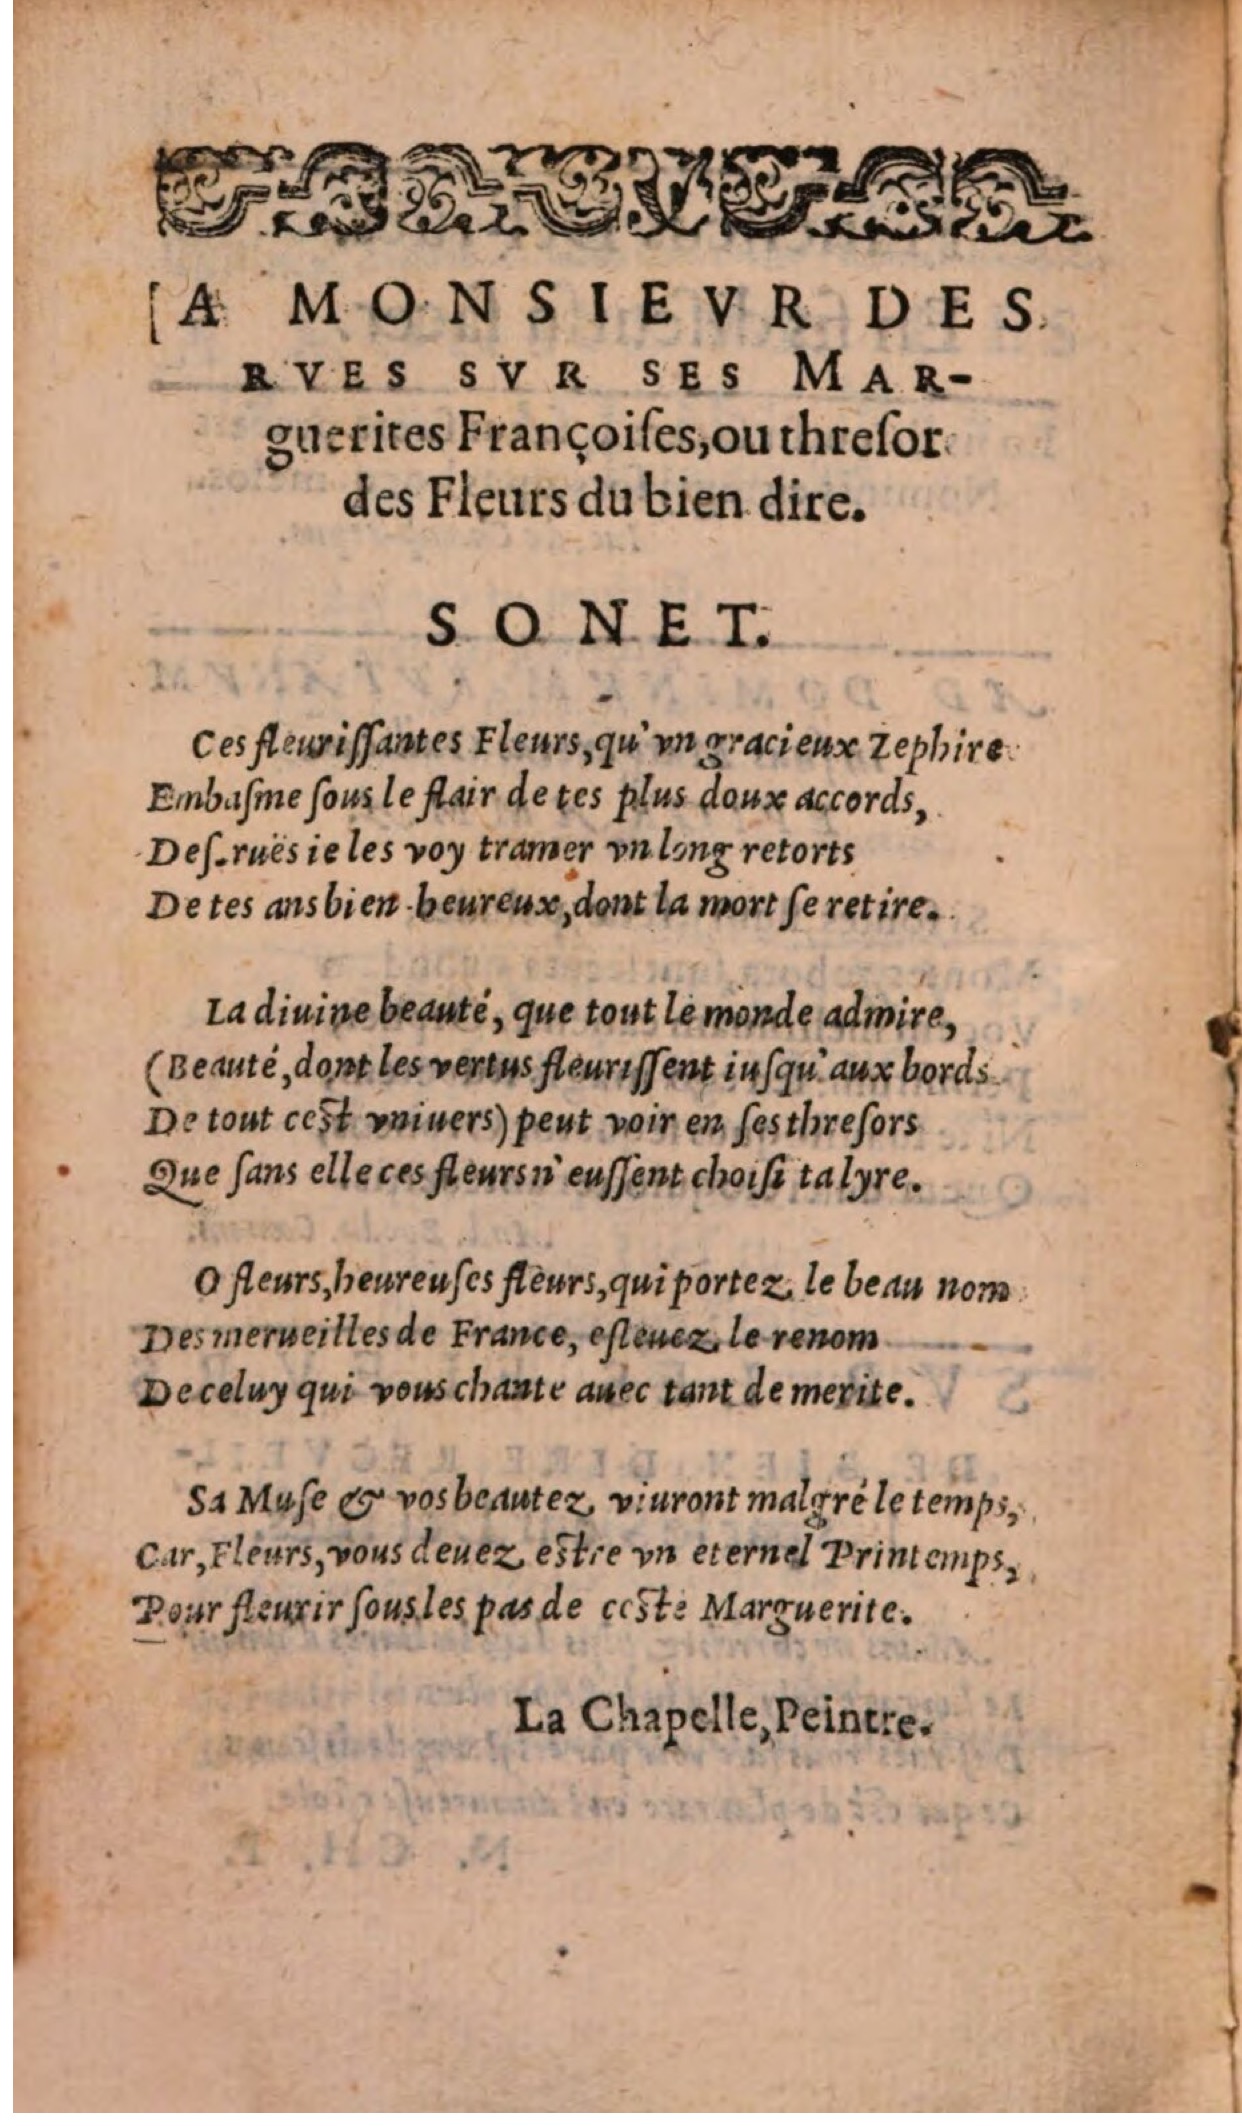 A MONSIEVR DES
RVES SVR SES MAR-
guerites Françoiſes, ou threſor
des Fleurs du bien dire.
SONET.
Ces fleuriſſantes Fleurs, qu'vn gracieux Zephire
Embaſme ſous le flair de tes plus doux accords,
Deſ-ruës ie les voy tramer vn long retorts
De tes ans bien-heureux, dont la mort ſe retire.
La diuine beauté, que tout le monde admire,
(Beauté, dont les vertus fleuriſſent iuſqu'aux bords
De tout ceſt vniuers) peut voir en ſes threſors
Que ſans elle ces fleurs n'euſſent choiſi ta lyre.
O fleurs, heureuſes fleurs, qui portez le beau nom
Des merueilles de France, eſleuez le renom
De celuy qui vous chante auec tant de merite.
Sa Muſe & vos beautez viuront malgré le temps,
Car, Fleurs, vous deuez eſtre vn eternel Printemps,
Pour fleurir ſous les pas de ceſte Marguerite.
La Chapelle, Peintre.